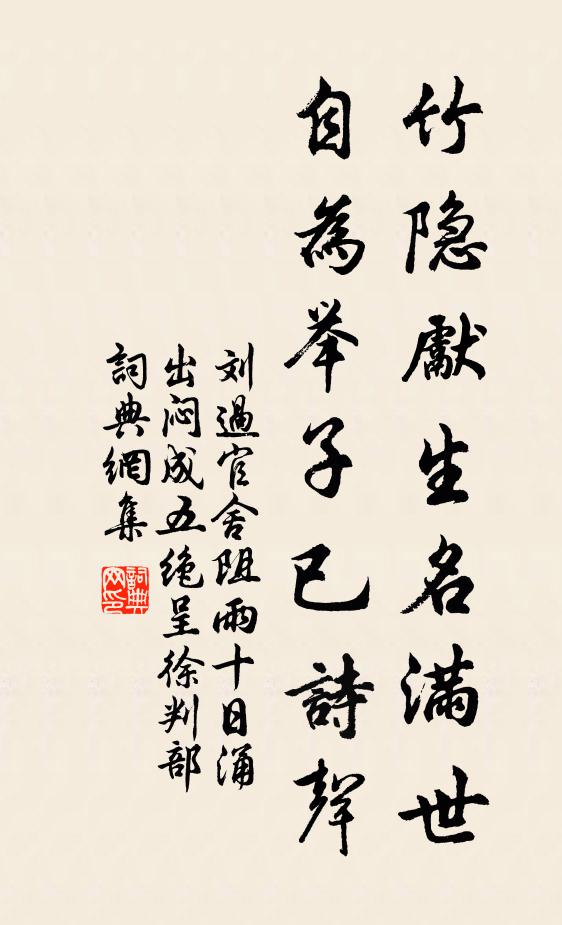 竹隐獻生名满世
自為举子已詩聲
刘過官舍阻雨十日涌
出闷成五绝呈徐判部
詞典網集
詞典
网印